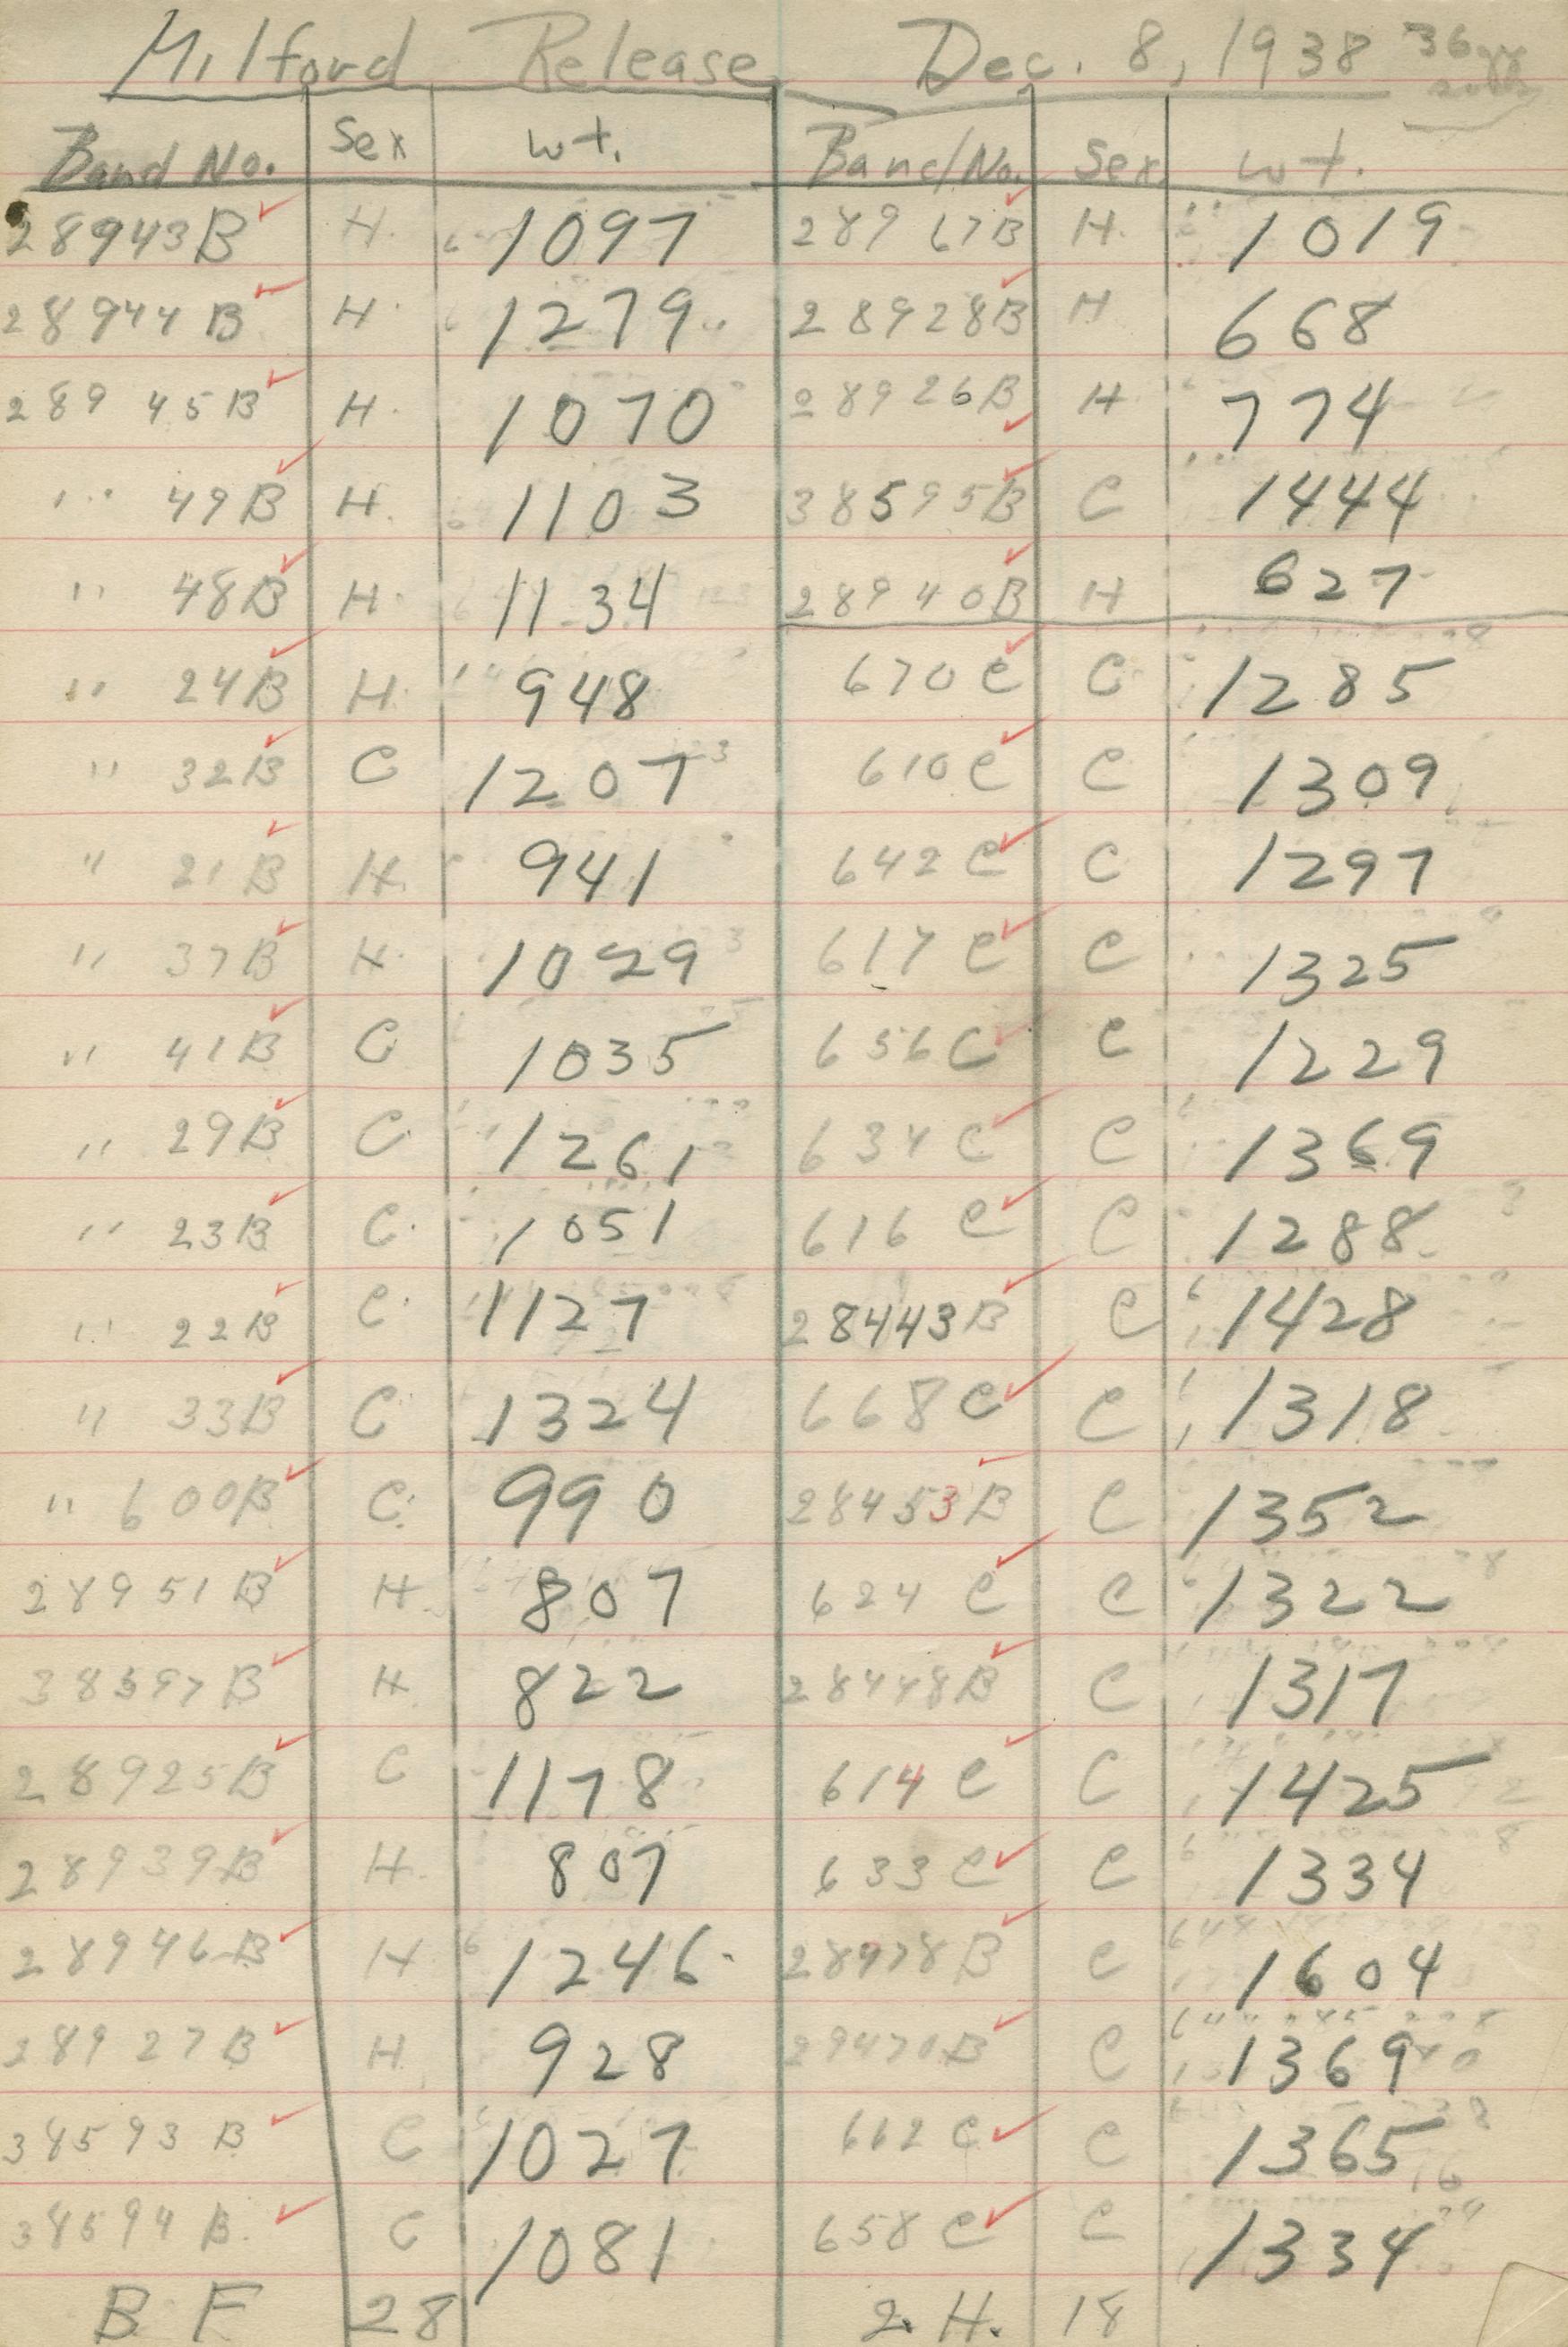 Milford Release Dec. 8, 1938 36
Band No. Sex wt. Band No. Sex wt.
28943B H. 1097 28967B H. 1019
28944B H. 1279 28928B H 668
28945B H. 1070 28926B H 774
" 49B H. 1103 38595B C 1444
" 48B H. 1134 28940B H 627
" 24B H. 948 670C C 1285
" 32B C 1207 610C C 1309
" 21B H. 941 642C C 1297
" 37B H. 1029 617C C 1325
" 41B C 1035 656C C 1229
" 29B C 1261 634C C 1369
" 23B C. 1051 616C C 1288
" 22B C. 1127 28443B C 1428
" 33B C 1324 668C C 1318
" 600B C. 990 28453B C 1352
28951B H. 807 624C C 1322
38597B H 822 28448B C 1317
28925B C 1178 614C C 1425
28939B H. 807 633C C 1334
28946B H 1246. 28978B C 1604
28927B H. 928 29470B C 1369
38593B C 1027 662C C 1365
38594B. C 1081 658C C 1334
BF 28 2. H. 18